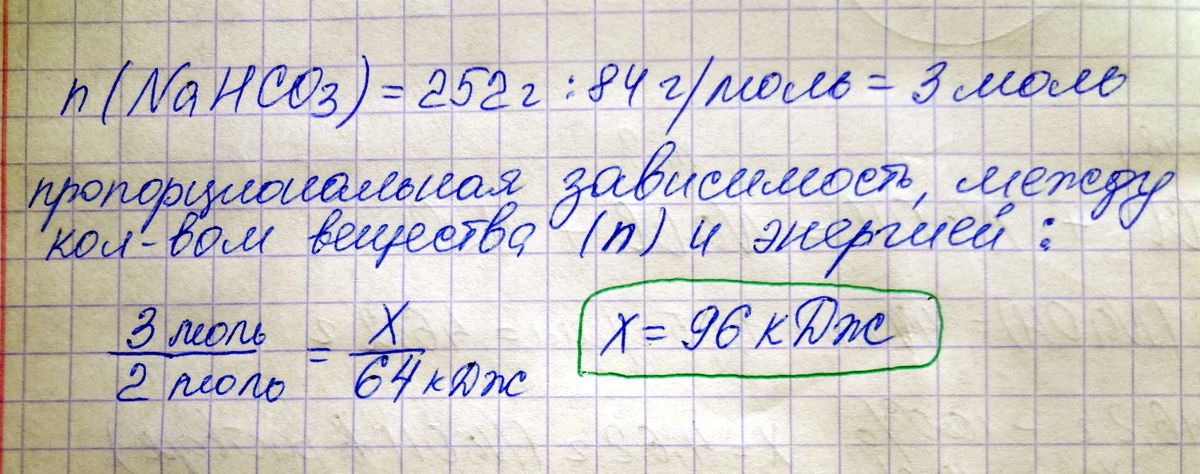 n(NaHCO3) = 252 г : 84 г/моль = 3 моль
пропорциональная зависимость, между
кол-вом вещества (n) и энергией :
3 моль / 2 моль = X / 64 кДж
X = 96 кДж